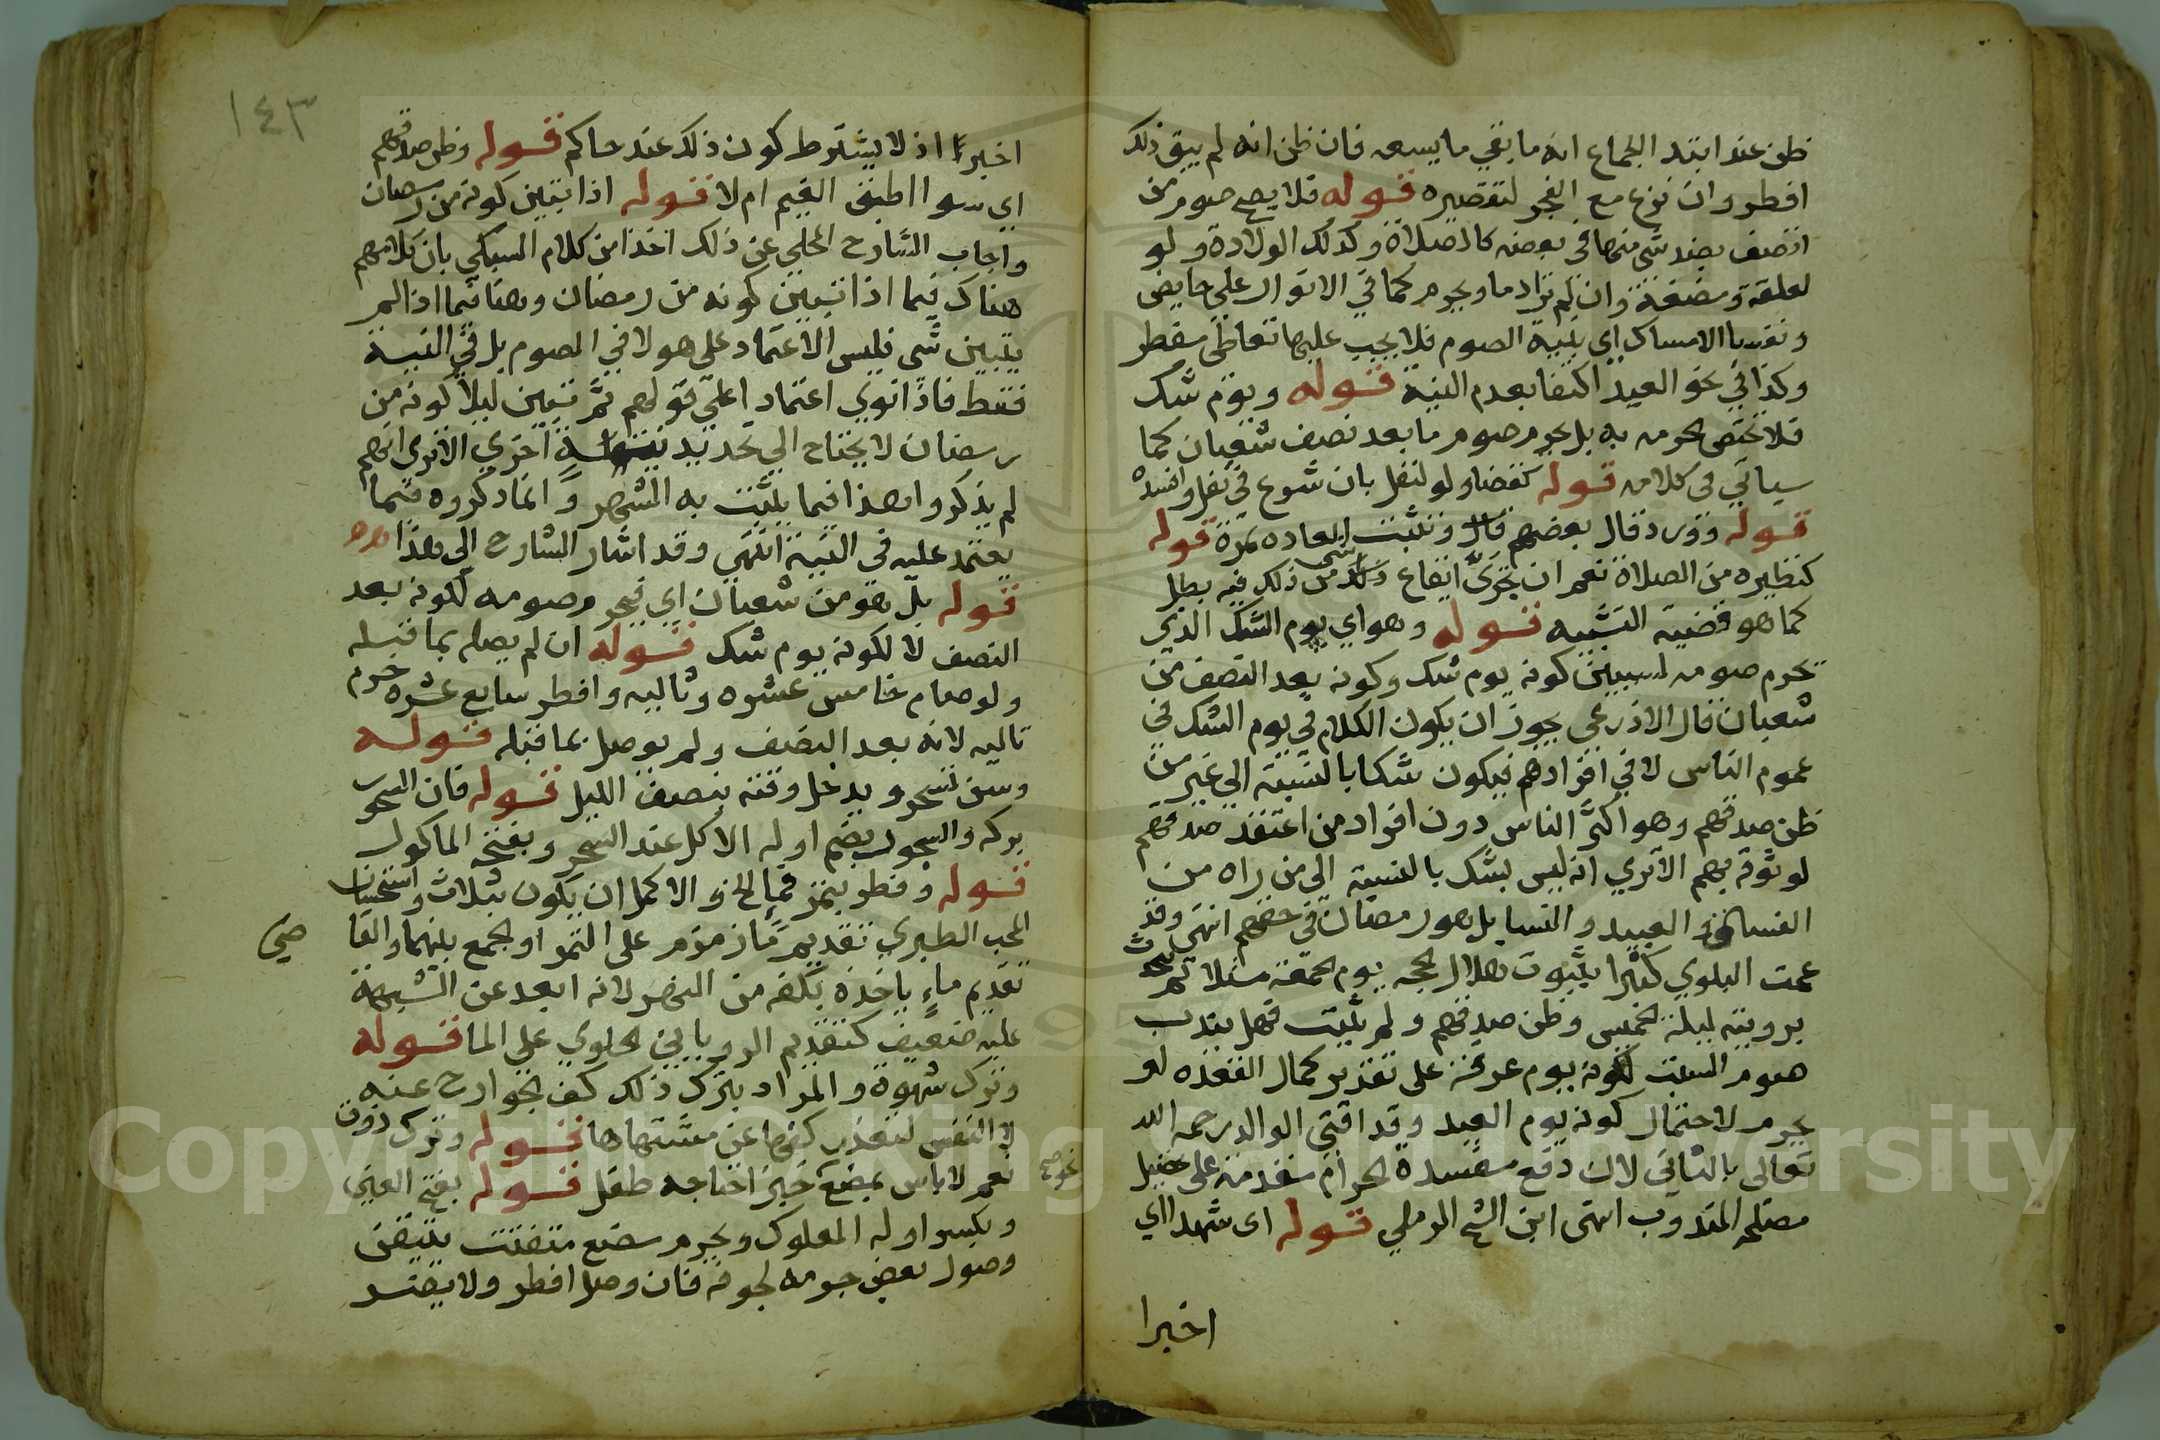 ظن عند ابتدا الجماع انه ما بقي ما يسعه فان ظن انه لم يبق ذلك
افطر وان نزع مع الفجر لتقصيره قوله فلا يصح صوم من
اتصف بضد شي منها في بعضه كالصلاة وكذلك الولادة ولو
لعلقة ومضغة وان لم تر دما ويحرم كما في الانوار علي حايض
ونفسا الامساك اي بنية الصوم فلا يجب عليها تعاطي مفطر
وكذا في نحو العيد اكتفا بعدم النية قوله ويوم شك
فلا تختص الحرمه به بل يحرم صوم ما بعد نصف شعبان كما
سياتي في كلامه قوله كقضا ولو لنفل بان شرع في نفل وافسده
قوله وورد قال بعضهم قال وتثبت العاده بمرة قوله
كنظيره من الصلاة نعم ان تحري ايقاع ذلك فيه بطل
كما هو قضية التشبيه قوله وهو اي يوم الشك الذي
يحرم صومه لسببين كونه يوم شك وكونه بعد النصف من
شعبان قال الاذرعي يجوز ان يكون الكلام في يوم الشك في
عموم الناس لا في افرادهم فيكون شكا بالنسبة الي غير من
ظن صدقهم وهو اكثر الناس دون افراد من اعتقد صدقهم
لوثوقه بهم الا تري انه ليس بشك بالنسبة الي من راه من
الفساق والعبيد والنسا بل هو رمضان في حقهم انتهي وقد
عمت البلوي كثيرا بثبوت هلال الحجه يوم الجمعة مثلا ثم يتحدث
برويته ليلة الخميس وظن صدقهم ولم يثبت فهل يندب
صوم السبت لكونه يوم عرفة علي تقدير كمال القعده او
يحرم لاحتمال كونه يوم العيد وقد افتي الوالد رحمه الله
تعالي بالثاني لان دفع مفسدة الحرام مقدمة علي تحصيل
مصلحة المندوب انتهي ابن الشيخ الرملي قوله اي شهدا اي
اخبرا
١٤٣
اخبرا اذ لا يشترط كون ذلك عند حاكم قوله وظن صدقهم
اي سوا اطبق الغيم ام لا قوله اذا تبين كونه من رمضان
واجاب الشارح المحلي عن ذلك اخذا من كلام السبكي بان كلامهم
هناك فيما اذا تبين كونه من رمضان وهنا فيما اذا لم
يتبين شي فليس الاعتماد علي هولا في الصوم بل في النية
فقط فاذا نوي اعتمادا علي قولهم ثم تبين ليلا كونه من
رمضان لا يحتاج الي تجديد نية اخري الا تري انهم
لم يذكروا هذا فيما يثبت به الشهر وانما ذكروه فيما
يعتمد عليه في النية انتهي وقد اشار الشارح الي هذا
قوله بل هو من شعبان اي فيحرم صومه لكونه بعد
النصف لا لكونه يوم شك قوله ان لم يصله بما قبله
ولو صام خامس عشره وتاليه وافطر سابع عشره حرم
تاليه لانه بعد النصف ولم يوصل بما قبله قوله
وسن تسحر ويدخل وقته بنصف الليل قوله فان السحور
بركه والسحور بضم اوله الاكل عند السحر وبفتحه الماكول
قوله وفطر بتمر فما الخ والاكمل ان يكون بثلاث واستحسان
المحب الطبري تقديم ما زمزم علي التمر او الجمع بينهما والقا
ضي
تقديم ماء ياخذه بكفه من النهر لانه ابعد عن الشبهة
عليه ضعيف كتقديم الروياني الحلوي علي الما قوله
وترك شهوة والمراد بترك ذلك كف الجوارح عنه
لا النفس لتعذر كفها عن مشتهاها قوله وترك ذوق
نعم لا باس بمضغ نحو خبز احتاجه طفل قوله بفتح العين
وبكسر اوله المعلوك ويحرم مضغ متفتت بتيقن
وصول بعض جرمه لجوفه فان وصل افطر ولا يفسد
Copyright © King Saud University